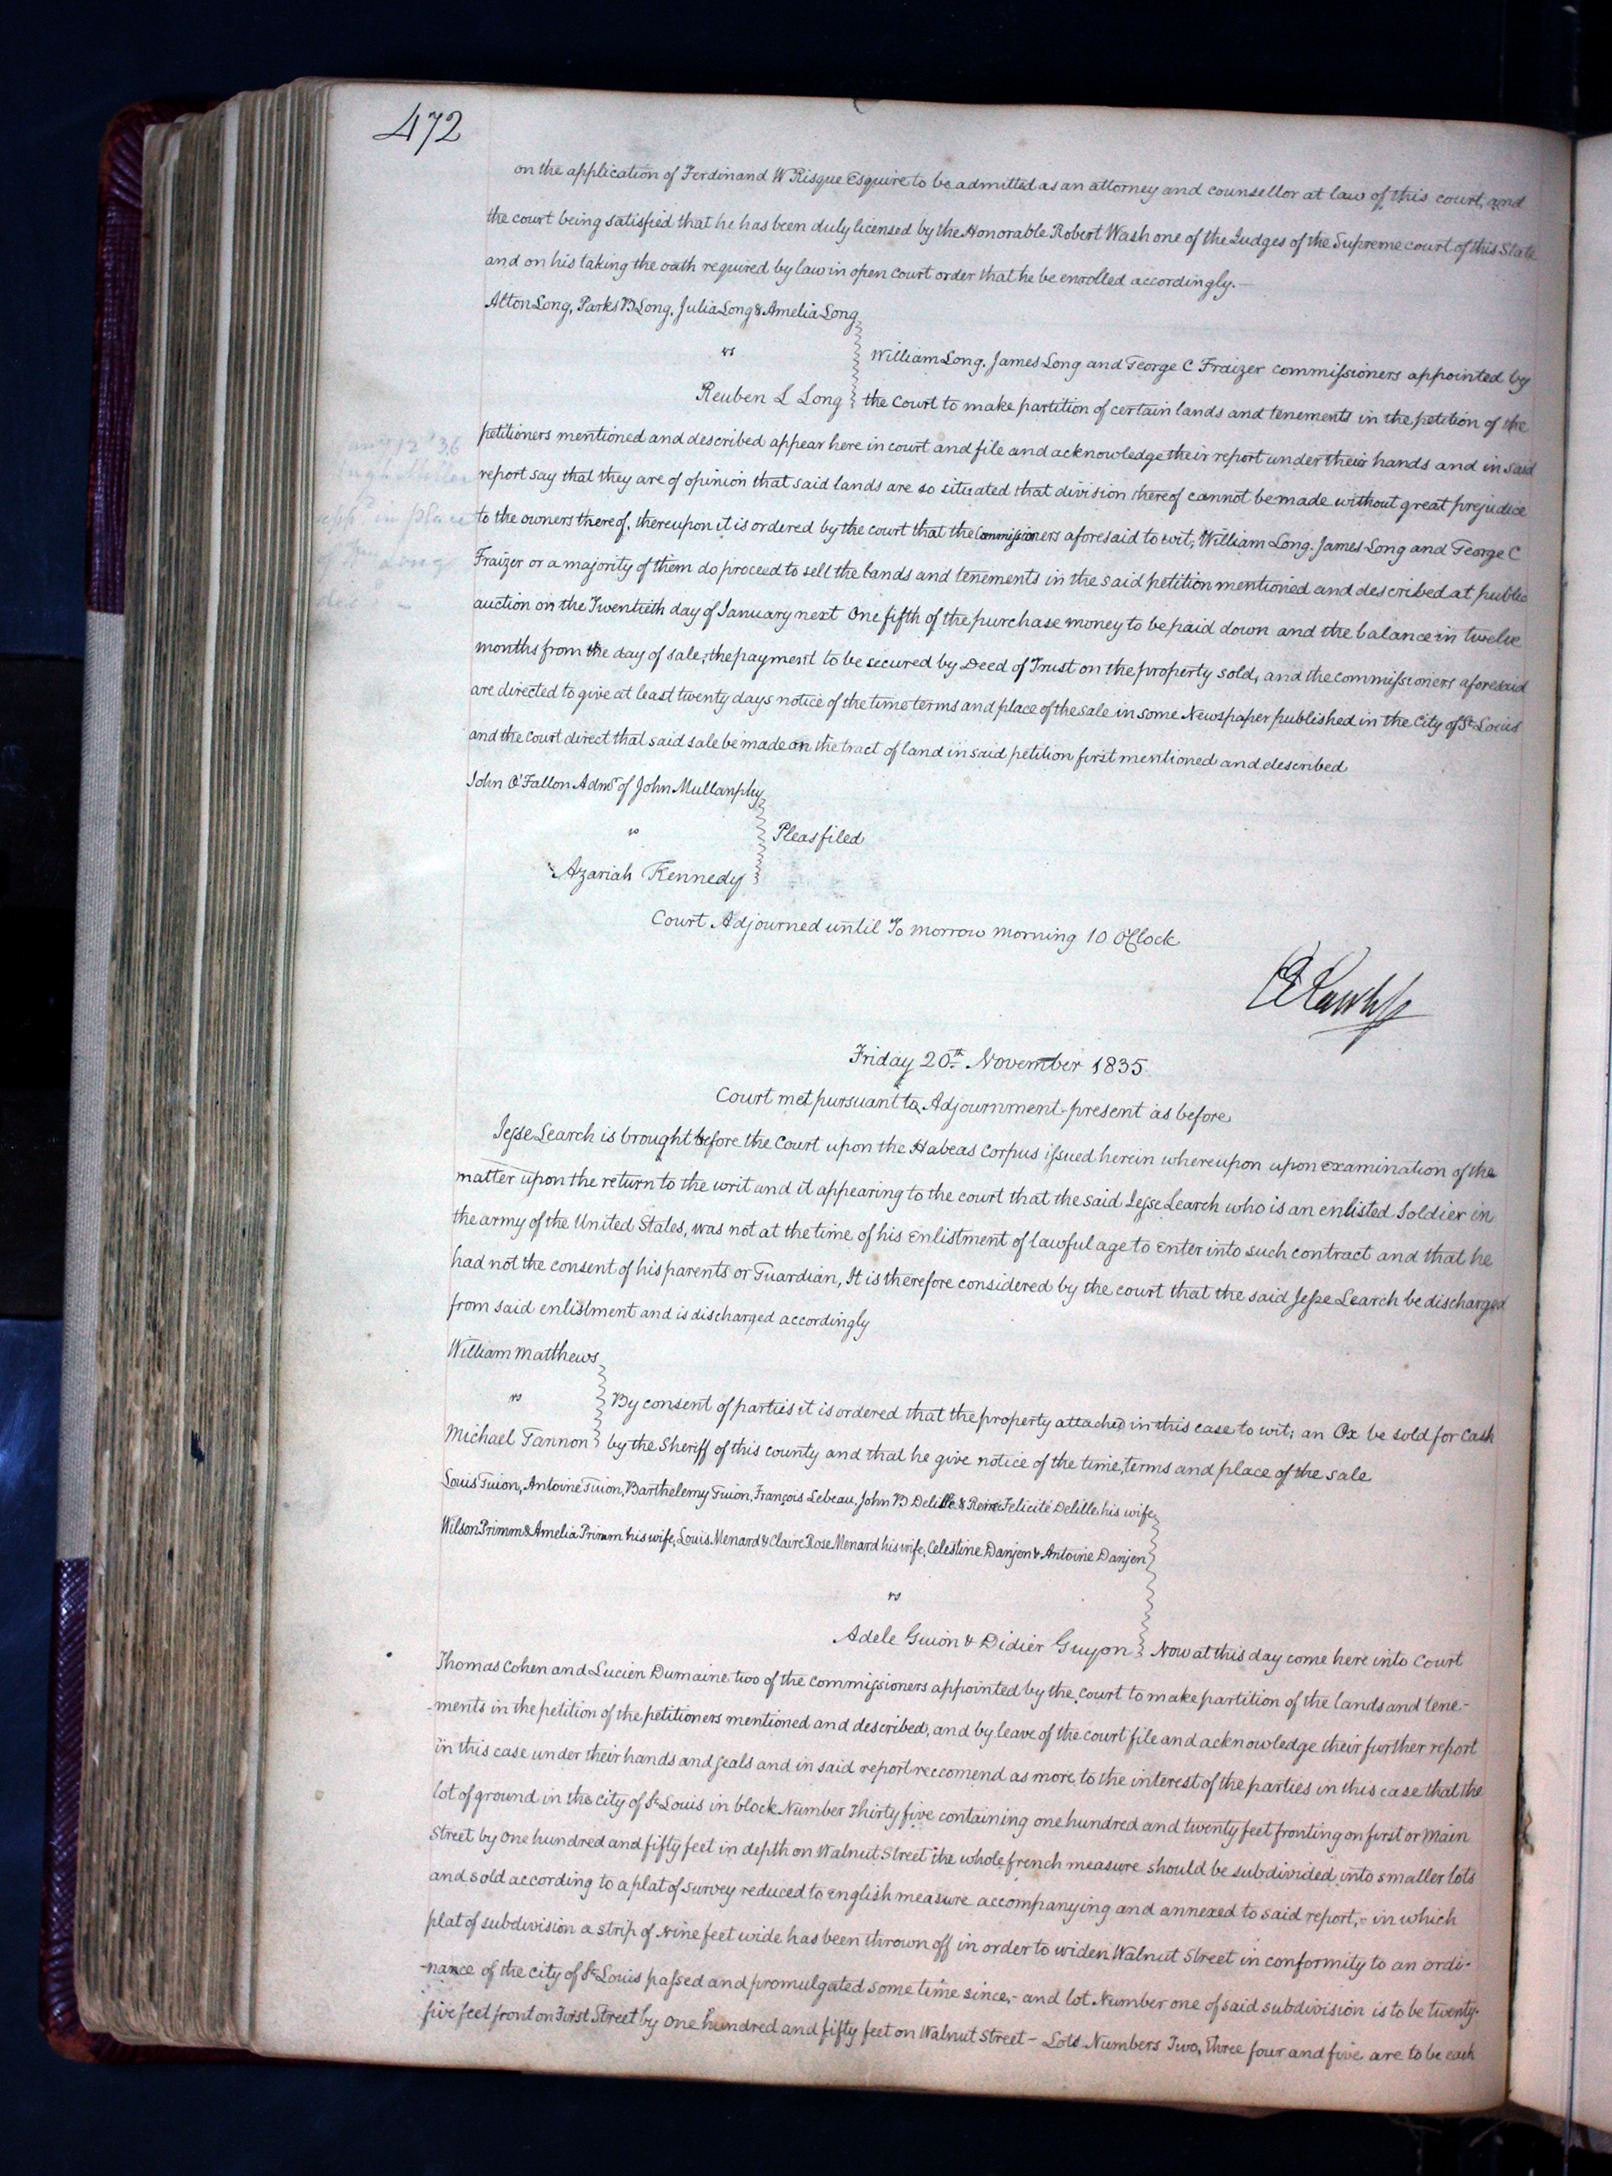 472
on the application of Ferdinand W Risque Esquire to be admitted as an attorney and counsellor at law of this court, and
the court being satisfied that he has been duly licensed by the Honorable Robert Wash one of the Judges of the Supreme court of this State
and on his taking the oath required by law in open court order that he be enrolled accordingly. —
Alton Long, Parks B Long, Julia Long & Amelia Long
vs
William Long, James Long and George C Fraizer commissioners appointed by
Reuben L Long the Court to make partition of certain lands and tenements in the petition of the
petitioners mentioned and described appear here in court and file and acknowledge their report under their hands and in said
report say that they are of opinion that said lands are so situated that division thereof cannot be made without great prejudice
to the owners thereof, thereupon it is ordered by the court that the Commissioners aforesaid to wit, William Long, James Long and George C
Fraizer or a majority of them do proceed to sell the lands and tenements in the said petition mentioned and described at public
auction on the Twentieth day of January next One fifth of the purchase money to be paid down and the balance in twelve
months from the day of sale, the payment to be secured by Deed of Trust on the property sold, and the commissioners aforesaid
are directed to give at least twenty days notice of the time terms and place of the sale in some Newspaper published in the City of St Louis
and the court direct that said sale be made on the tract of land in said petition first mentioned and described
12 '36
Miller
in place
of Long
dec
John O'Fallon Admr of John Mullanphy
vs
Pleas filed
Azariah Kennedy
Court Adjourned until To morrow morning 10 O'Clock
Friday 20th November 1835
Court met pursuant to Adjournment - present as before
Jesse Learch is brought before the Court upon the Habeas Corpus issued herein whereupon upon examination of the
matter upon the return to the writ and it appearing to the court that the said Jesse Learch who is an enlisted Soldier in
the army of the United States, was not at the time of his enlistment of lawful age to enter into such contract and that he
had not the consent of his parents or Guardian, It is therefore considered by the court that the said Jesse Learch be discharged
from said enlistment and is discharged accordingly
William Matthews
vs
By consent of parties it is ordered that the property attached in this case to wit; an Ox be sold for Cash
Michael Tannon by the Sheriff of this county and that he give notice of the time, terms and place of the sale
Louis Guion, Antoine Guion, Barthelemy Guion, François Lebeau, John B Delille & Reine Felicité Delille his wife
Wilson Primm & Amelia Primm his wife, Louis Menard & Claire Rose Menard his wife, Celestine Danjen & Antoine Danjen
vs
Adele Guion & Didier Guyon Now at this day come here into Court
Thomas Cohen and Lucien Dumaine two of the commissioners appointed by the Court to make partition of the lands and tene-
-ments in the petition of the petitioners mentioned and described, and by leave of the court file and acknowledge their further report
in this case under their hands and seals and in said report reccomend as more to the interest of the parties in this case that the
lot of ground in the city of St Louis in block Number Thirty five containing one hundred and twenty feet fronting on first or Main
Street by one hundred and fifty feet in depth on Walnut Street the whole french measure should be subdivided into smaller lots
and sold according to a plat of survey reduced to english measure accompanying and annexed to said report, - in which
plat of subdivision a strip of Nine feet wide has been thrown off in order to widen Walnut Street in conformity to an ordi-
-nance of the city of St Louis passed and promulgated some time since, - and lot Number one of said subdivision is to be twenty-
five feet front on First Street by one hundred and fifty feet on Walnut Street - Lots Numbers Two, Three four and five are to be each